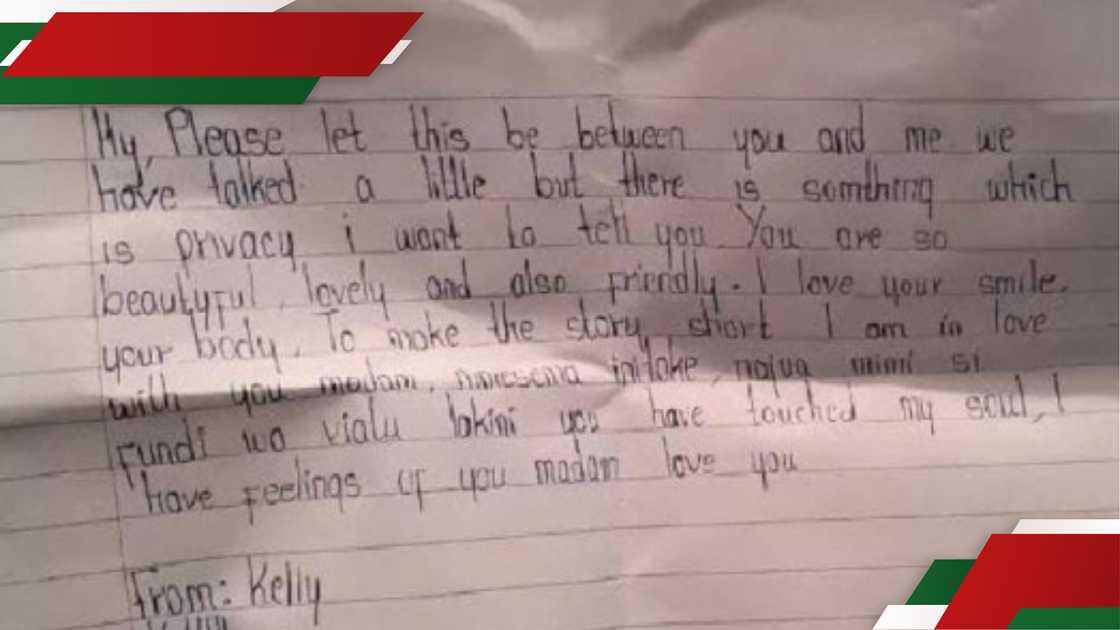 Hy, Please let this be between you and me we
have talked a little but there is somthing which
is privacy i want to tell you You are so
beautyful, lovely and also friendly. I love your smile.
your body. To make the story short I am in love
with you madam, nimesema initoke, najua mimi si
fundi wa viatu lakini you have touched my soul, I
have feelings of you madam love you
From: Kelly